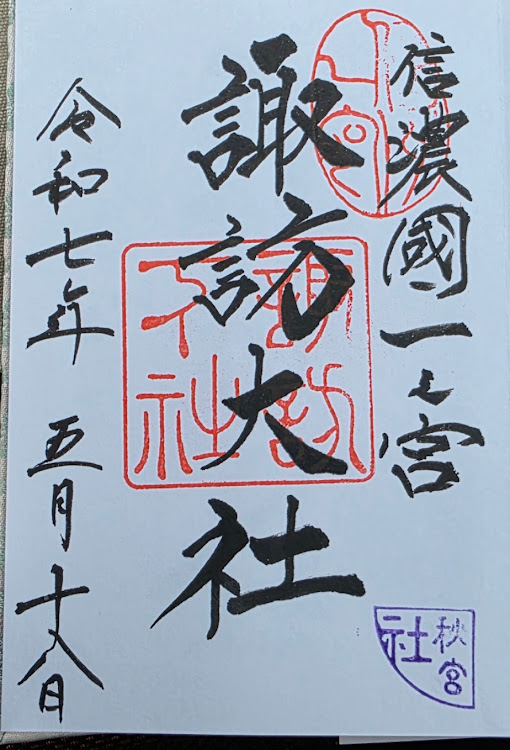 信濃國一之宮
諏訪大社
令和七年 五月十八日
諏訪大社
秋宮
社